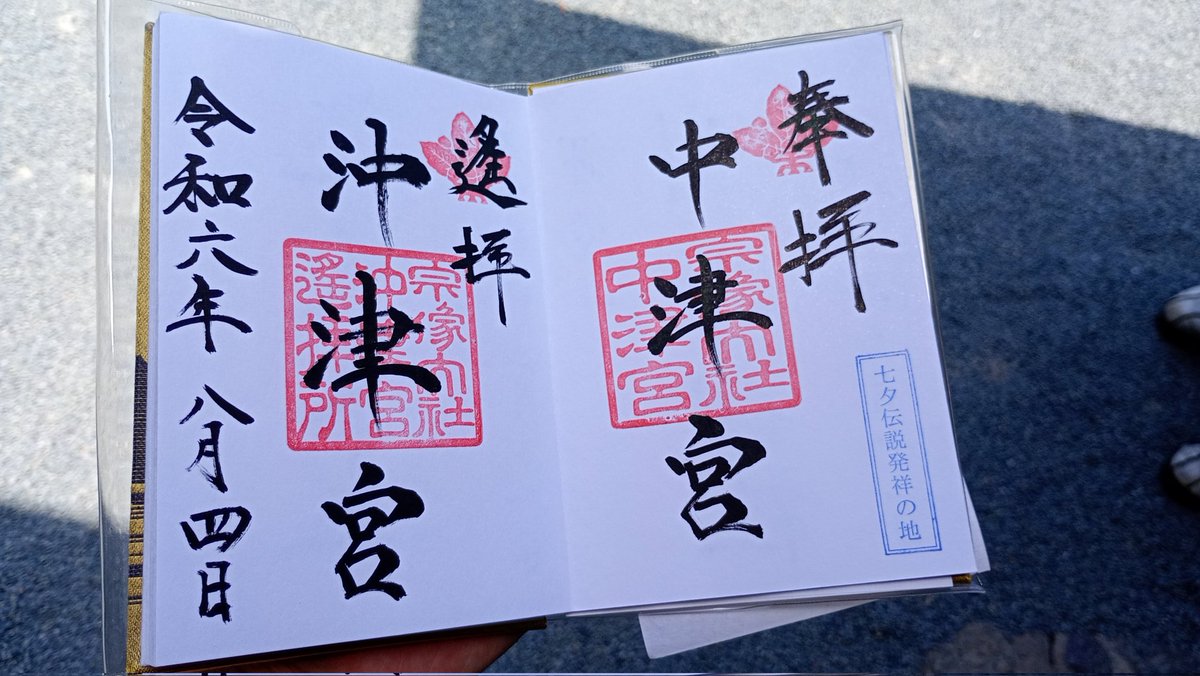 奉拝
中津宮
宗像大社
中津宮
七夕伝説発祥の地
遙拝
沖津宮
宗像大社
沖津宮
遙拝所
令和六年八月四日